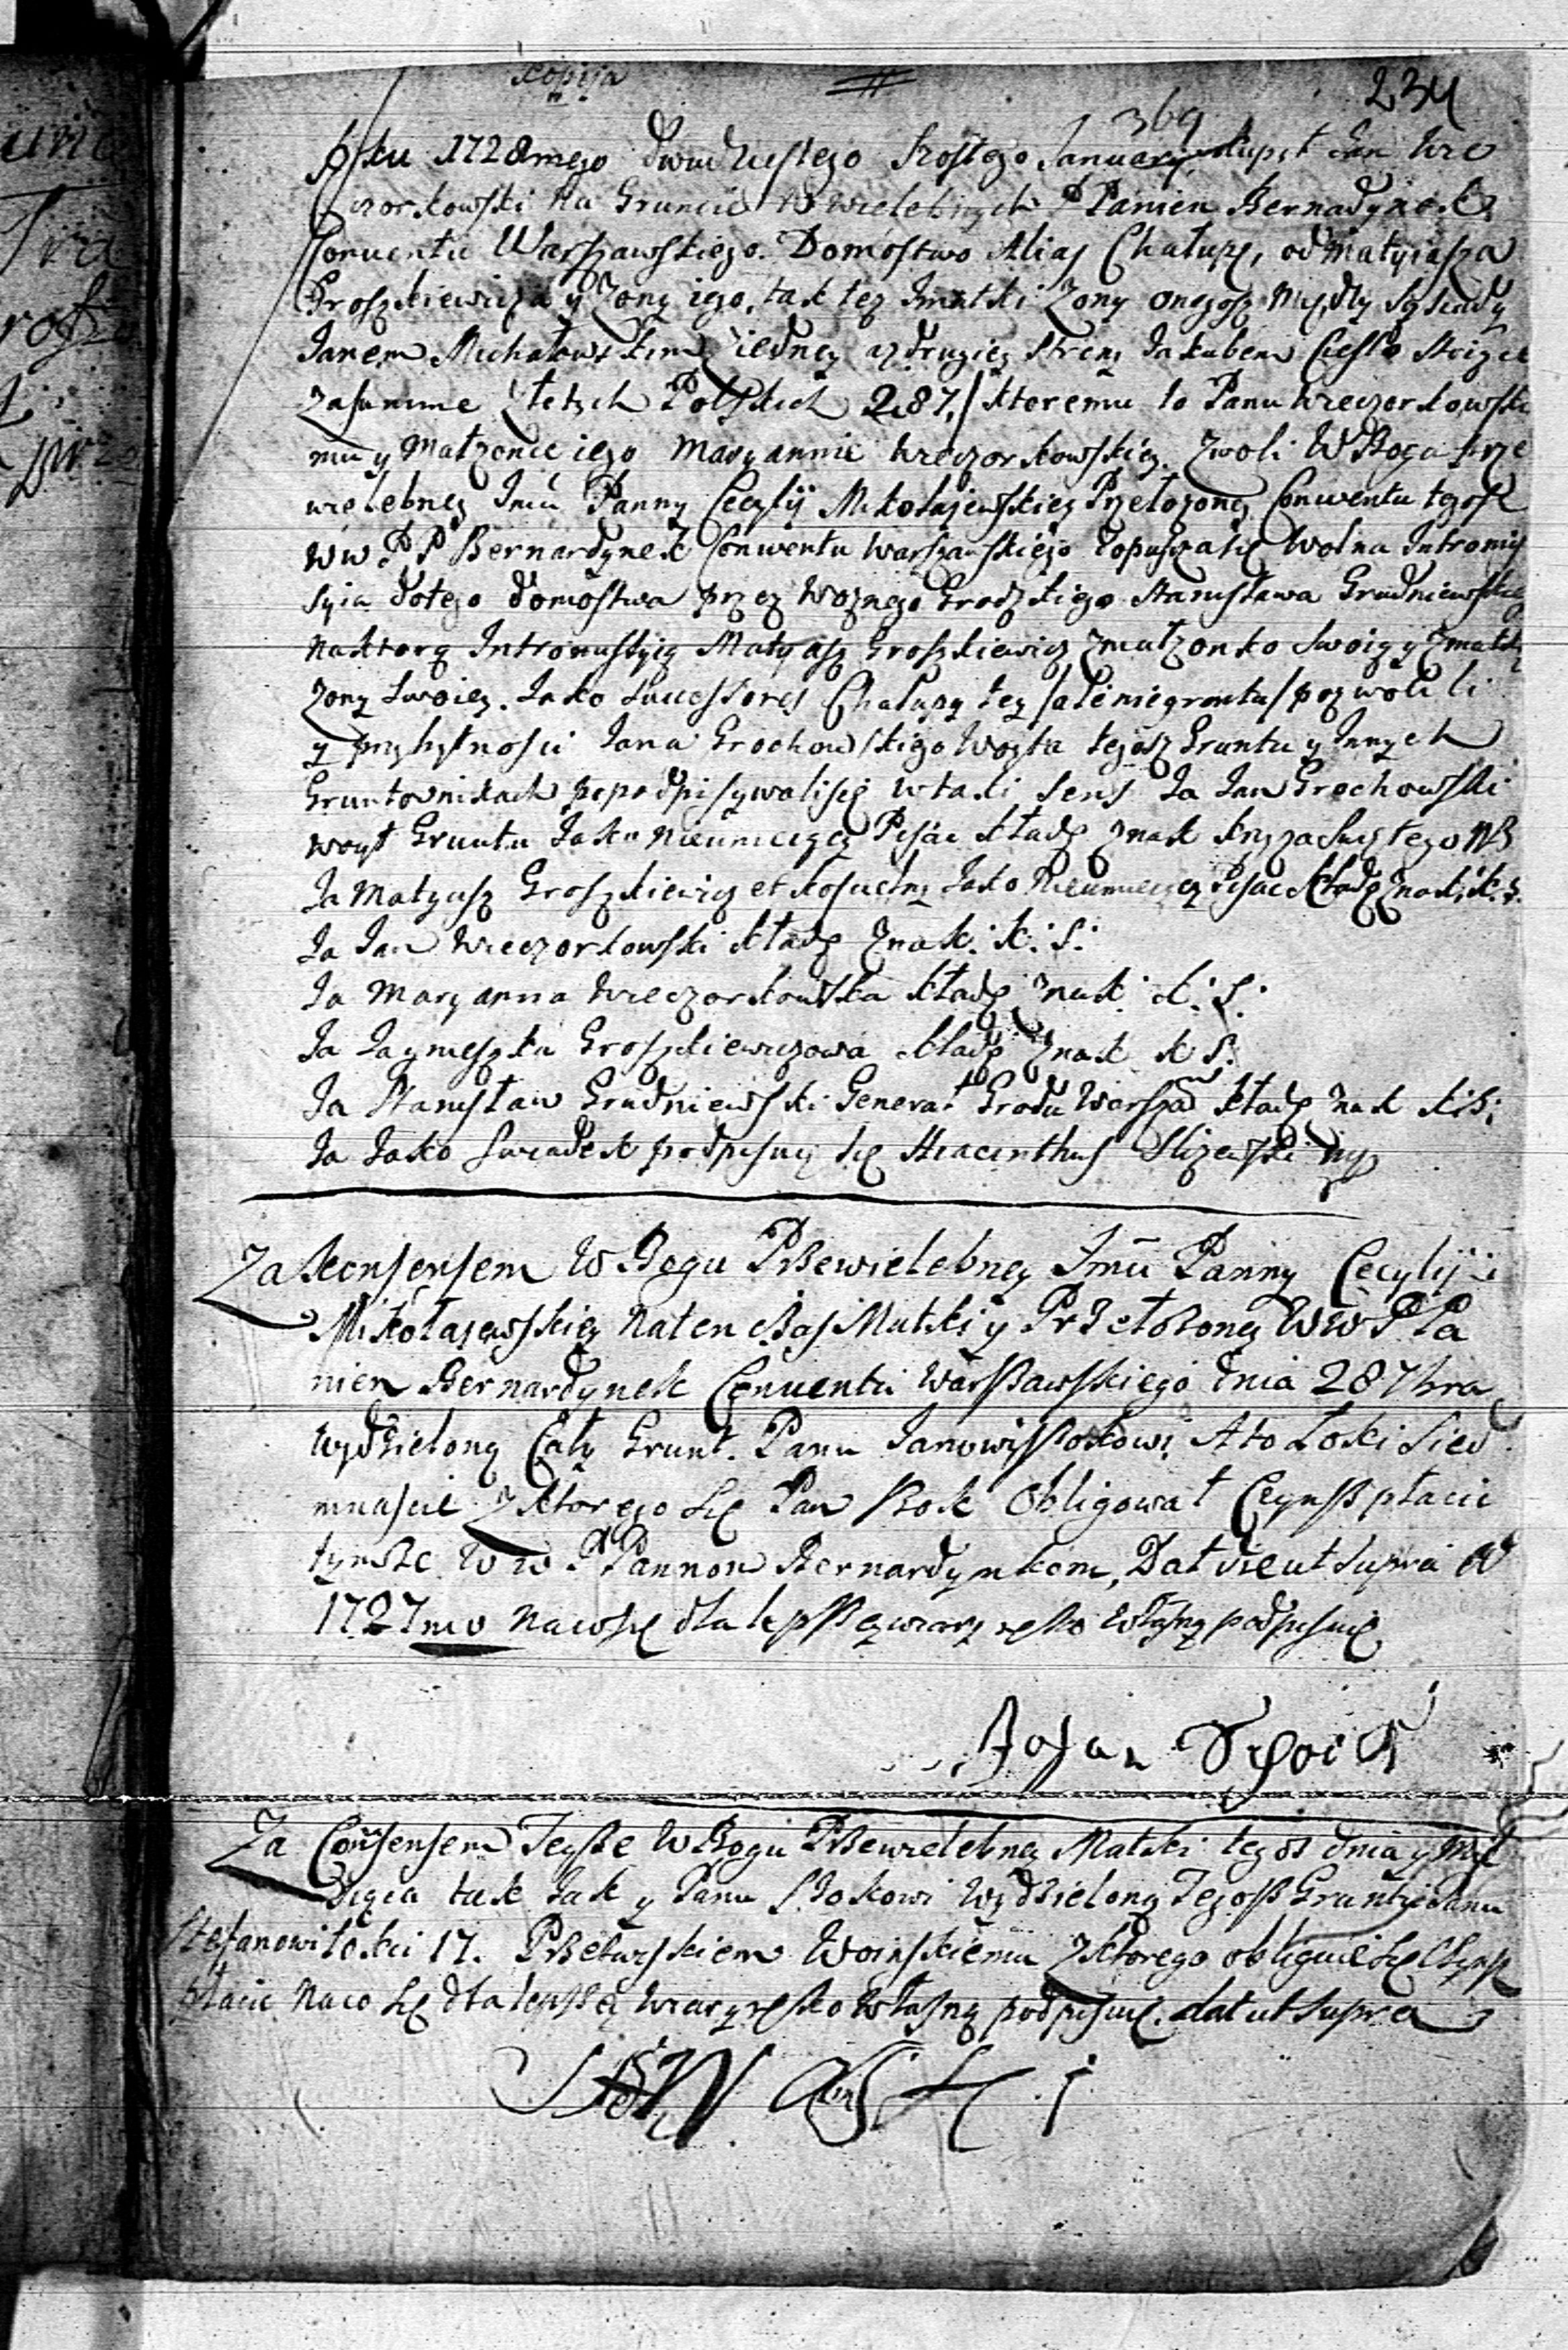 Kopija
234
369
Roku 1728mego dwudziestego szostego January kupił Jan Wie
czorkowski na Gruncie W wielebnych P Panien Bernadynek
Conuentu Warszawskiego. Domostwo Alias Chałupę, od Matyiasza
Groszkiewicza y Zony iego, tak tez Imatki Zony onegosz Między Sąsiady
Janem Michałowskim ziedney azdrugiey Strony Jakubem Cieslo
zasumme złotych Polskich 287./ ktoremu to Panu Wieczorkowski
mu y Małzonce iego Maryannie Wieczorkowskiey. Zwoli W Bogu prze
wielebney Jmci Panny Cecylij Mikołajewskiey Przełozoney Conwentu tegosz
WW. P P Bernardynek Conwentu Warszawskiego dopuszcza się Wolna Intromis
syia dotego domostwa przez Woznego Grodzkiego Stanisława Grudniewskieg
naktorą Intromissyią Matyasz Groszkiewicz zmałzonko Swoią y zmatką
Zony Swoiey. Jako Successores Chałupy tey /aleniegrontu/ pozwolili
y przytytnosci Jana Grochowskiego Woyta tegosz Gruntu y Innych
Gruntownikach popodpisywalisię wtaki Sens Ja Jan Grochowski
woyt Gruntu Jako Nieumieiący Pisac kładę znak krzyza Swiętego NB
Ja Matyasz Groszkiewicz et Jako Nieumieiący Pisac kładę znak: k: s:
Ja Jan Wieczorkowski kładę znak: k: s:
Ja Maryanna Wieczorkowska kładę znak: k: S:
Ja Jagnieszka Groszkiewiczowa kładę znak k S:
Ja Stanisław Grudniewski Generał Grodu Warszaw kładę znak k: S:
Ja Jako Swiadek podpisuię się Hiacinthus Slizewski mp
Za Konsensem W Bogu Przewielebney Jmci Panny Cecylij
Mikołajewskiey Naten czas Matki y Przełozoney WW P Pa
nien Bernardynek Conuentu Warszawskiego dnia 28 7bra
wydzielony Cały Grunt. Panu Janowi A to Łokci Sied
mnascie z ktorego się Pan Obligował Czynsz płacic
tymze WW P Pannom Bernardynkom, Dat die ut Supra A
1727mo Naco się dla lepszey wiary ręko własną podpisuię
Za Consensem Teysze W Bogu Przewielebney Matki tegos dnia y Mie
siąca tak Jak y Panu wydzielony Tegosz Gruntu Panu
Stefanowi łokci 17. Woinskiemu z ktorego obliguie się Czynsz
płacic Naco się dla lepszey wiary ręko własną podpisuię. dat ut supra